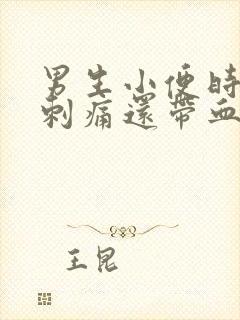 男生小便時
刺痛還帶血
王昆